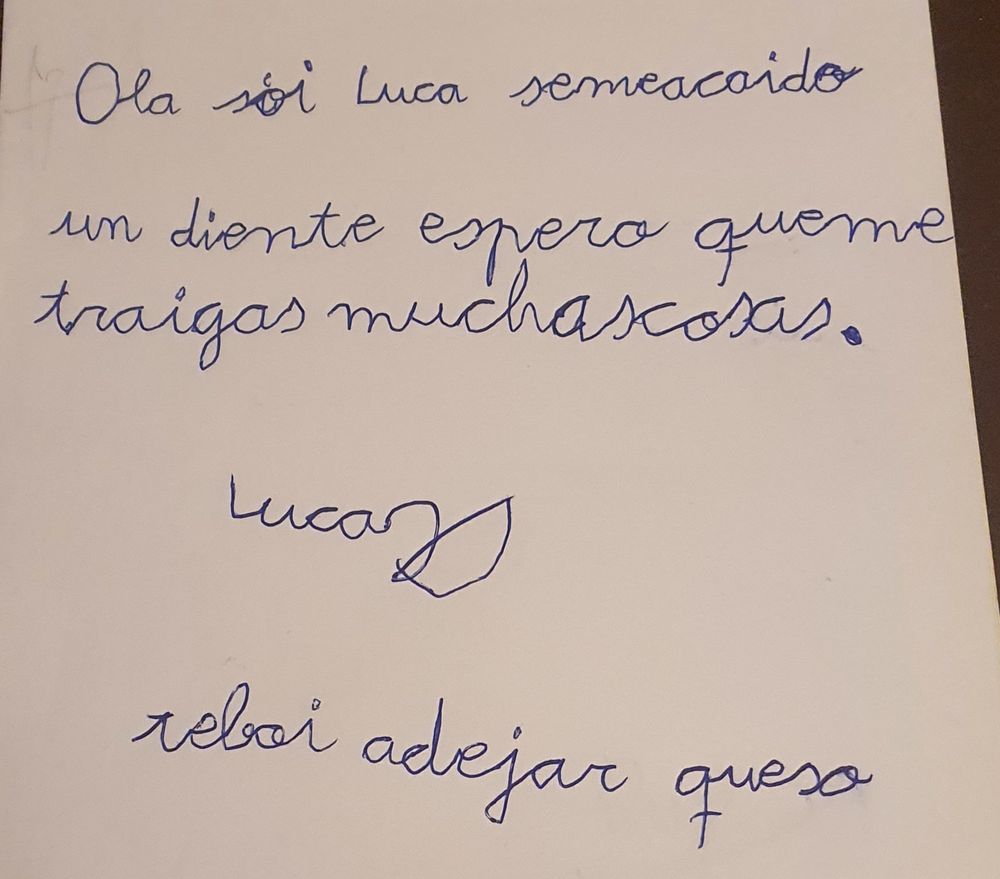 Ola soi Luca semeacaido
un diente espero queme
traigas muchascosas.
Luca
teboi adejar queso